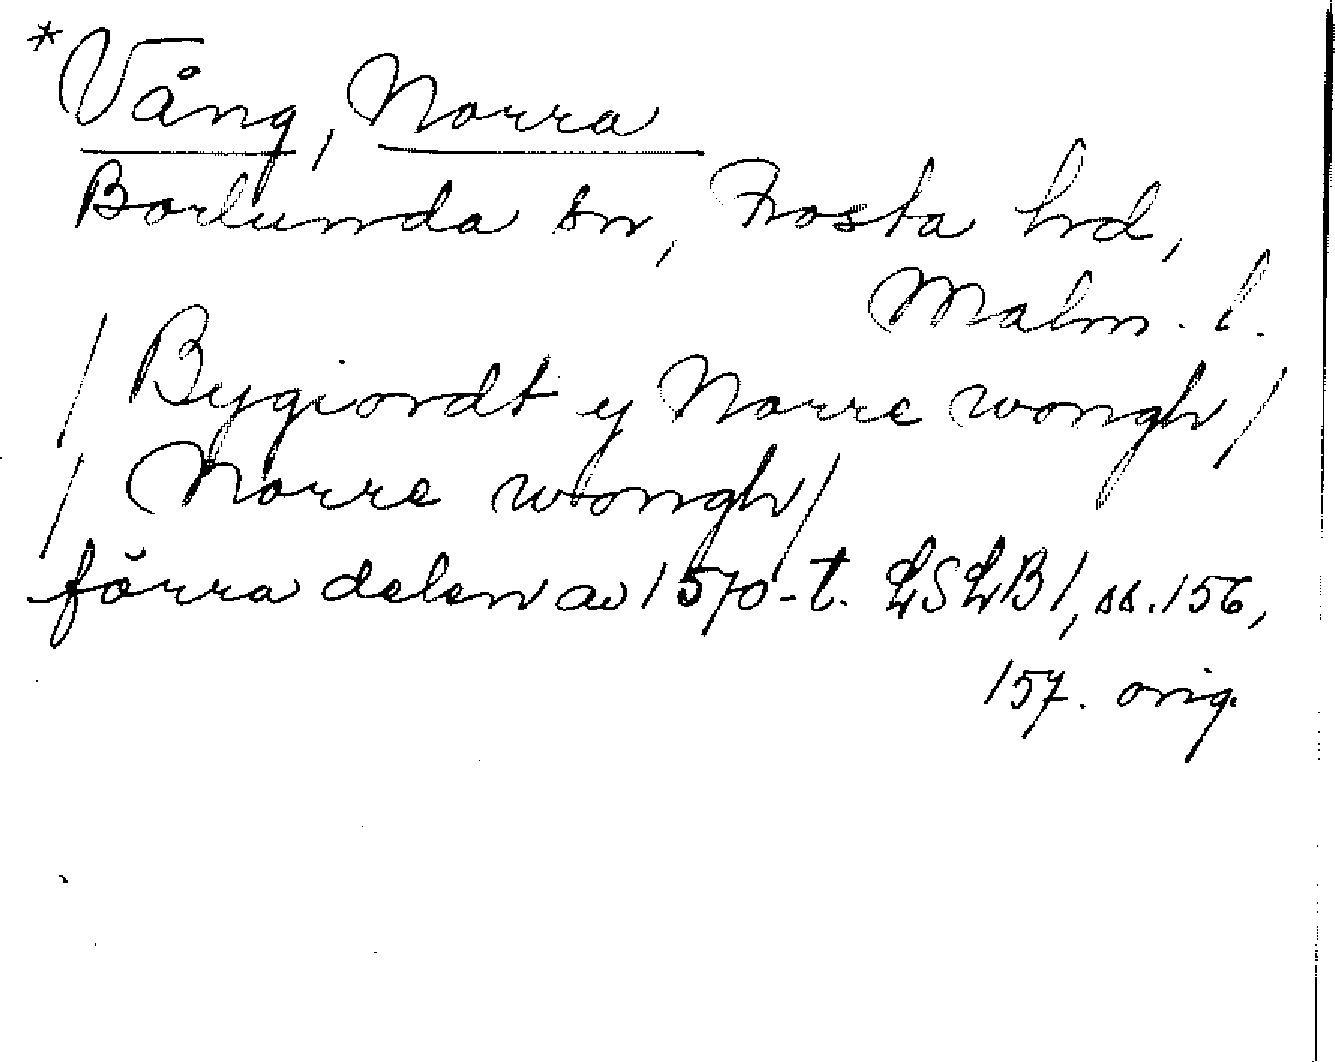 *Vång, Norra
Borlunda sn, Frosta hrd,
Malm. l.
/ Bygiordt y Norre wongh /
/ Norre wongh /
förra delen av 1570-t. LSLB 1, ss. 156,
157. orig.